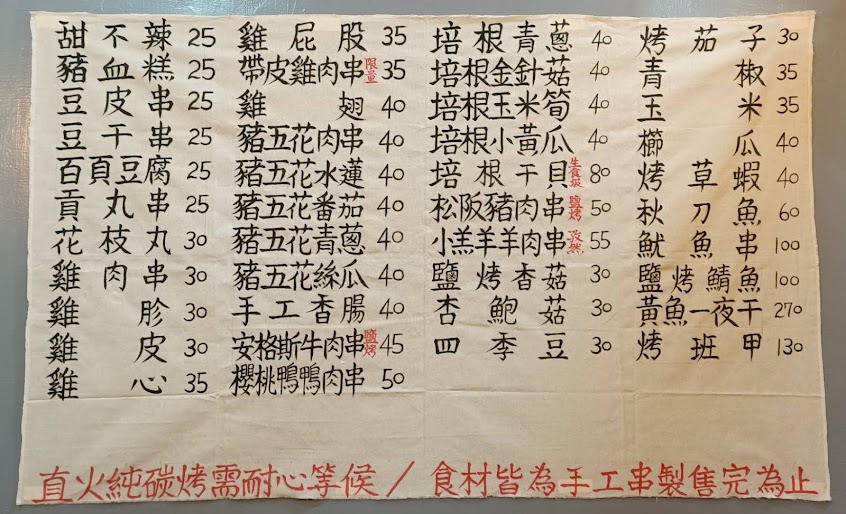 甜不辣 25
豬血糕 25
豆皮串 25
豆干串 25
百頁豆腐 25
貢丸串 25
花枝丸 30
雞肉串 30
雞胗 30
雞皮 30
雞心 35
雞屁股 35
帶皮雞肉串 限量 35
雞翅 40
豬五花肉串 40
豬五花水蓮 40
豬五花番茄 40
豬五花青蔥 40
豬五花絲瓜 40
手工香腸 40
安格斯牛肉串 鹽烤 45
櫻桃鴨鴨肉串 50
培根青蔥 40
培根金針菇 40
培根玉米筍 40
培根小黃瓜 40
培根干貝 生食級 80
松阪豬肉串 鹽烤 50
小羔羊羊肉串 孜然 55
鹽烤香菇 30
杏鮑菇 30
四季豆 30
烤茄子 30
青椒 35
玉米 35
櫛瓜 40
烤草蝦 40
秋刀魚 60
魷魚串 100
鹽烤鯖魚 100
黃魚一夜干 270
烤班甲 130
直火純碳烤需耐心等候 / 食材皆為手工串製售完為止